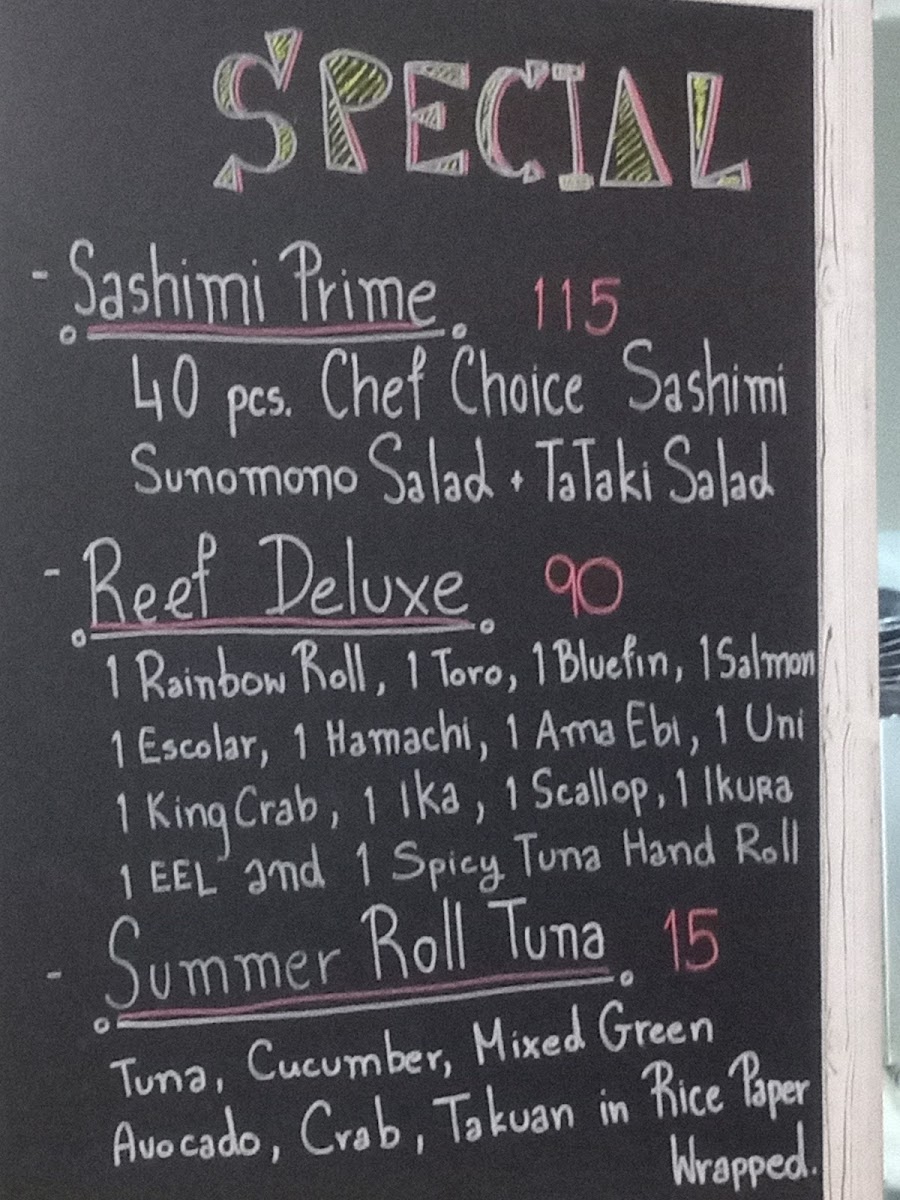 SPECIAL
- Sashimi Prime 115
40 pcs. Chef Choice Sashimi
Sunomono Salad + TaTaki Salad
- Reef Deluxe 90
1 Rainbow Roll, 1 Toro, 1 Bluefin, 1 Salmon
1 Escolar, 1 Hamachi, 1 Ama Ebi, 1 Uni
1 King Crab, 1 Ika, 1 Scallop, 1 Ikura
1 EEL and 1 Spicy Tuna Hand Roll
- Summer Roll Tuna 15
Tuna, Cucumber, Mixed Green
Avocado, Crab, Takuan in Rice Paper
Wrapped.